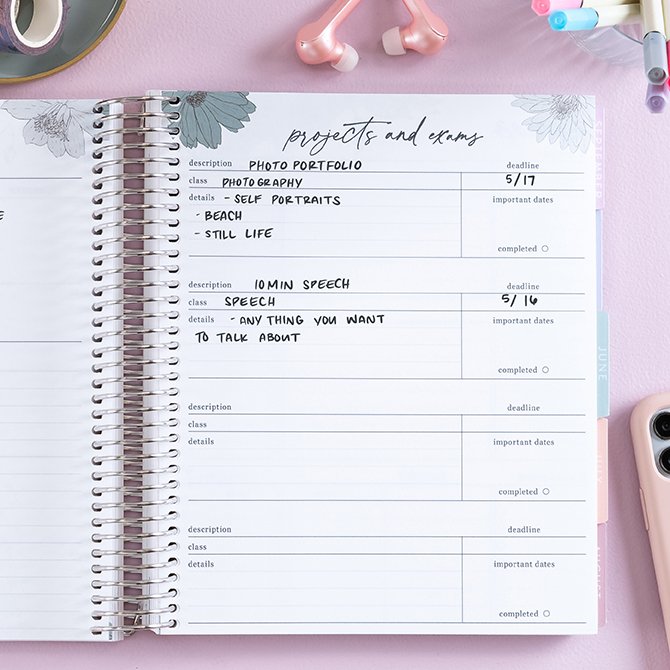 E
projects and exams
description PHOTO PORTFOLIO deadline
class PHOTOGRAPHY 5/17
details - SELF PORTRAITS important dates
- BEACH
- STILL LIFE
completed
description 10 MIN SPEECH deadline
class SPEECH 5/16
details - ANYTHING YOU WANT important dates
TO TALK ABOUT
completed
description deadline
class
details important dates
completed
description deadline
class
details important dates
completed
JUNE
JULY
AUGUST